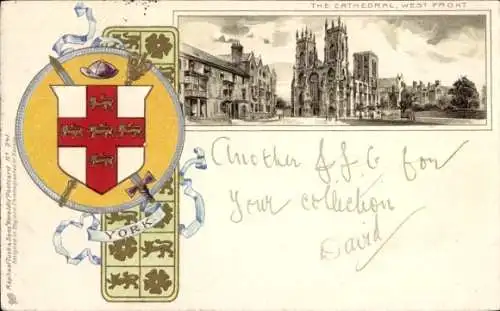 THE CATHEDRAL, WEST FRONT
Another J.J.C for
your collection
David
YORK
Raphael Tuck & Sons "View" Postcard Nº 241